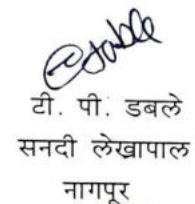 टी. पी. डबले
सनदी लेखापाल
नागपूर